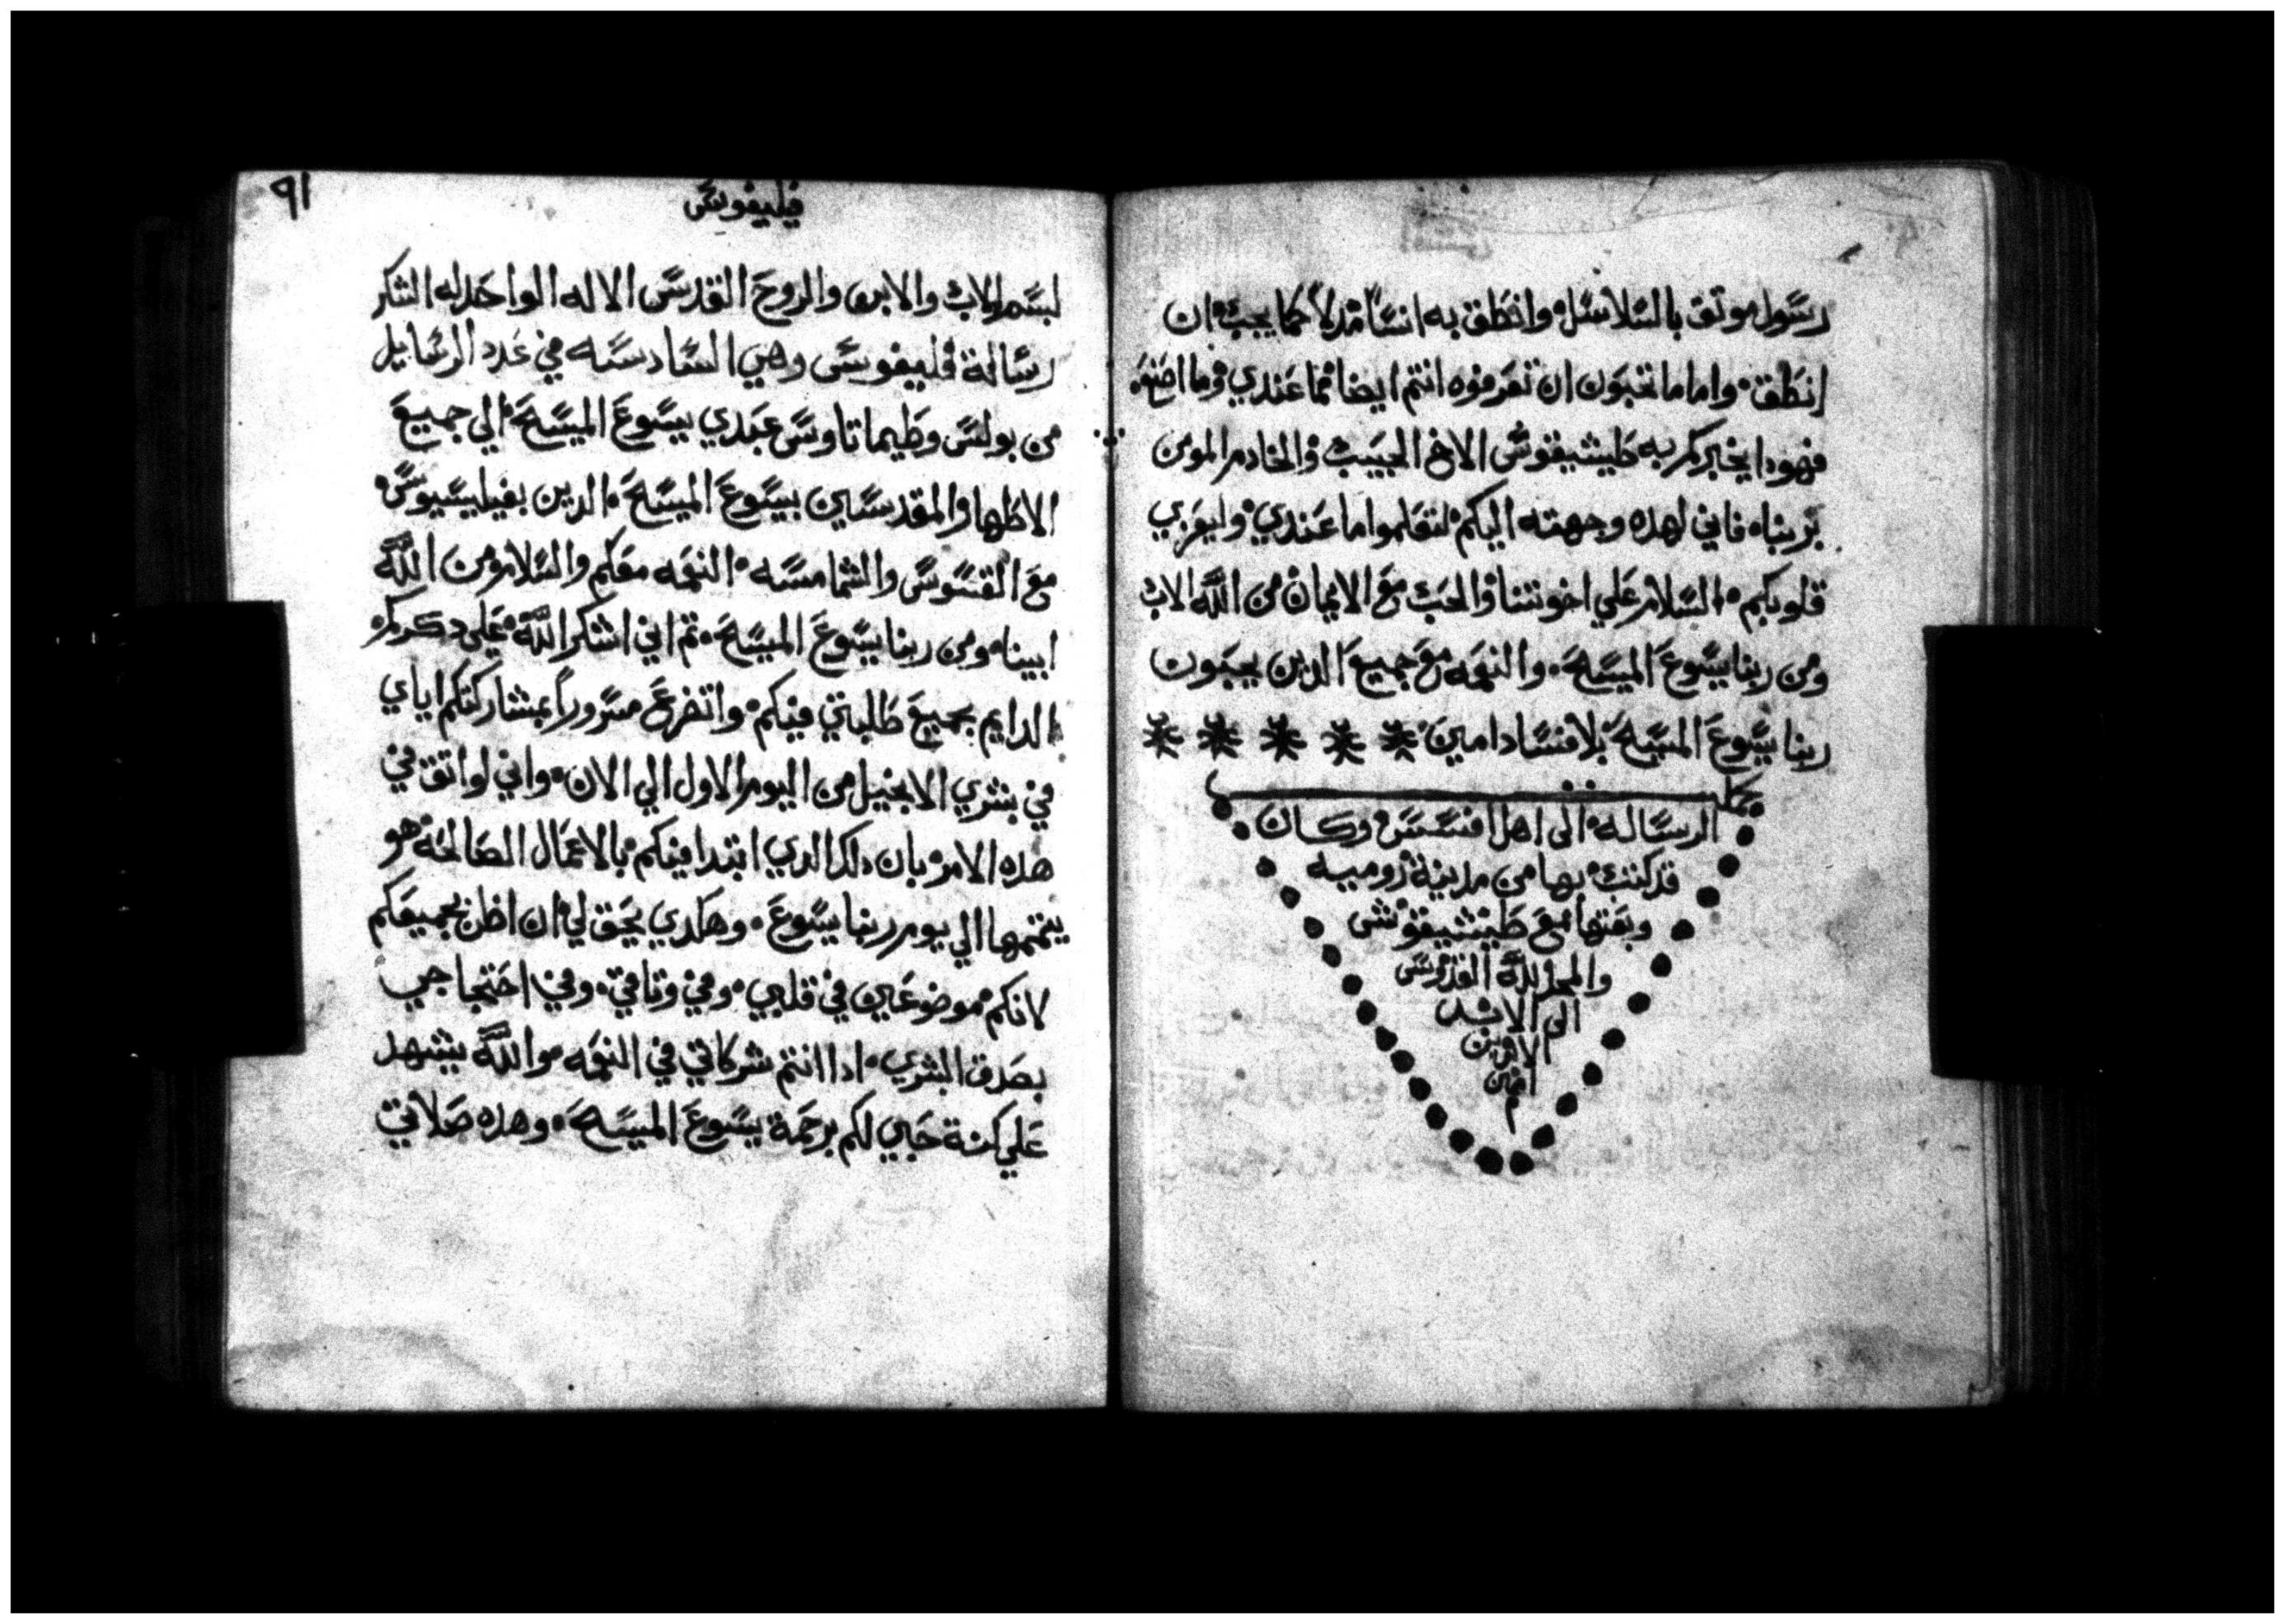 رسول موتق بالسلاسل وانطق به انسا مدلا كما يجب ان
انطق واما ما تحبون ان تعرفوه انتم ايضا مما عندي وما اصنع
فهودا يخبركم به طيشيقوس الاخ الحبيب والخادم المومن
بربناه فاني لهده وجهته اليكم لتعلموا ما عندي وليعزي
قلوبكم السلام علي اخوتنا والحب مع الايمان من الله الاب
ومن ربنا يسوع المسيح والنعمه مع جميع الدين يحبون
ربنا يسوع المسيح بلا فساد امين
الرساله الى اهل افسس وكان
قد كتبت بها من مدينة روميه
وبعتها مع طيشيقوس
والمجد لله القدوس
الى الابد
الابدين
امين
م
٩١
فيليفوس
بسم الاب والابن والروح القدس الاله الواحد له الشكر
رسالة فليفوس وهي السادسه في عدد الرسايل
من بولس وطيماتاوس عبدي يسوع المسيح الي جميع
الاطهار المقدسين بيسوع المسيح الدين بفيليسيوس
مع القسوس والشمامسه النعمه معكم والسلام من الله
ابيناه ومن ربنا يسوع المسيح تم اني اشكر الله علي دكركم
الدايم بجميع طلبتي فيكم واتضرع مسروراً بمشاركتكم اياي
في بشري الانجيل من اليوم الاول الي الان واني لواتق في
هده الامر بان دلك الدي ابتدا فيكم بالاعمال الصالحه هو
يتممها الي يوم ربنا يسوع وهكدي يحق لي ان اظن بجميعكم
لانكم موضوعين في قلبي وفي وتاقي وفي احتجاجي
بصدق البشري ادا انتم شركاتي في النعمه والله يشهد
علي كنة حبي لكم برحمة يسوع المسيح وهده صلاتي